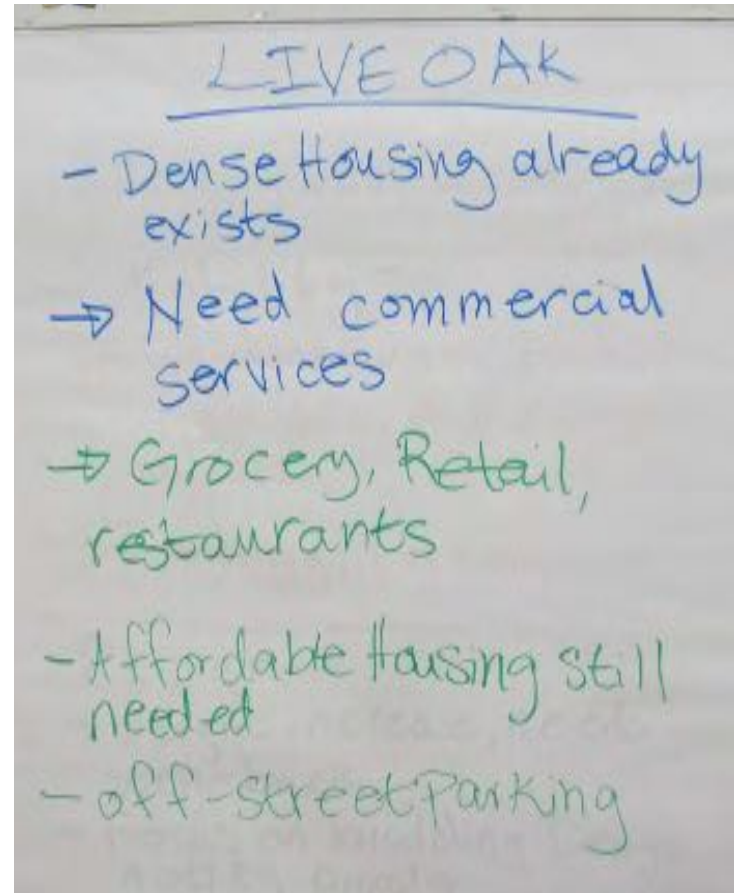 LIVE OAK
- Dense Housing already
exists
→ Need commercial
services
→ Grocery, Retail,
restaurants
- Affordable Housing still
needed
- off-street Parking